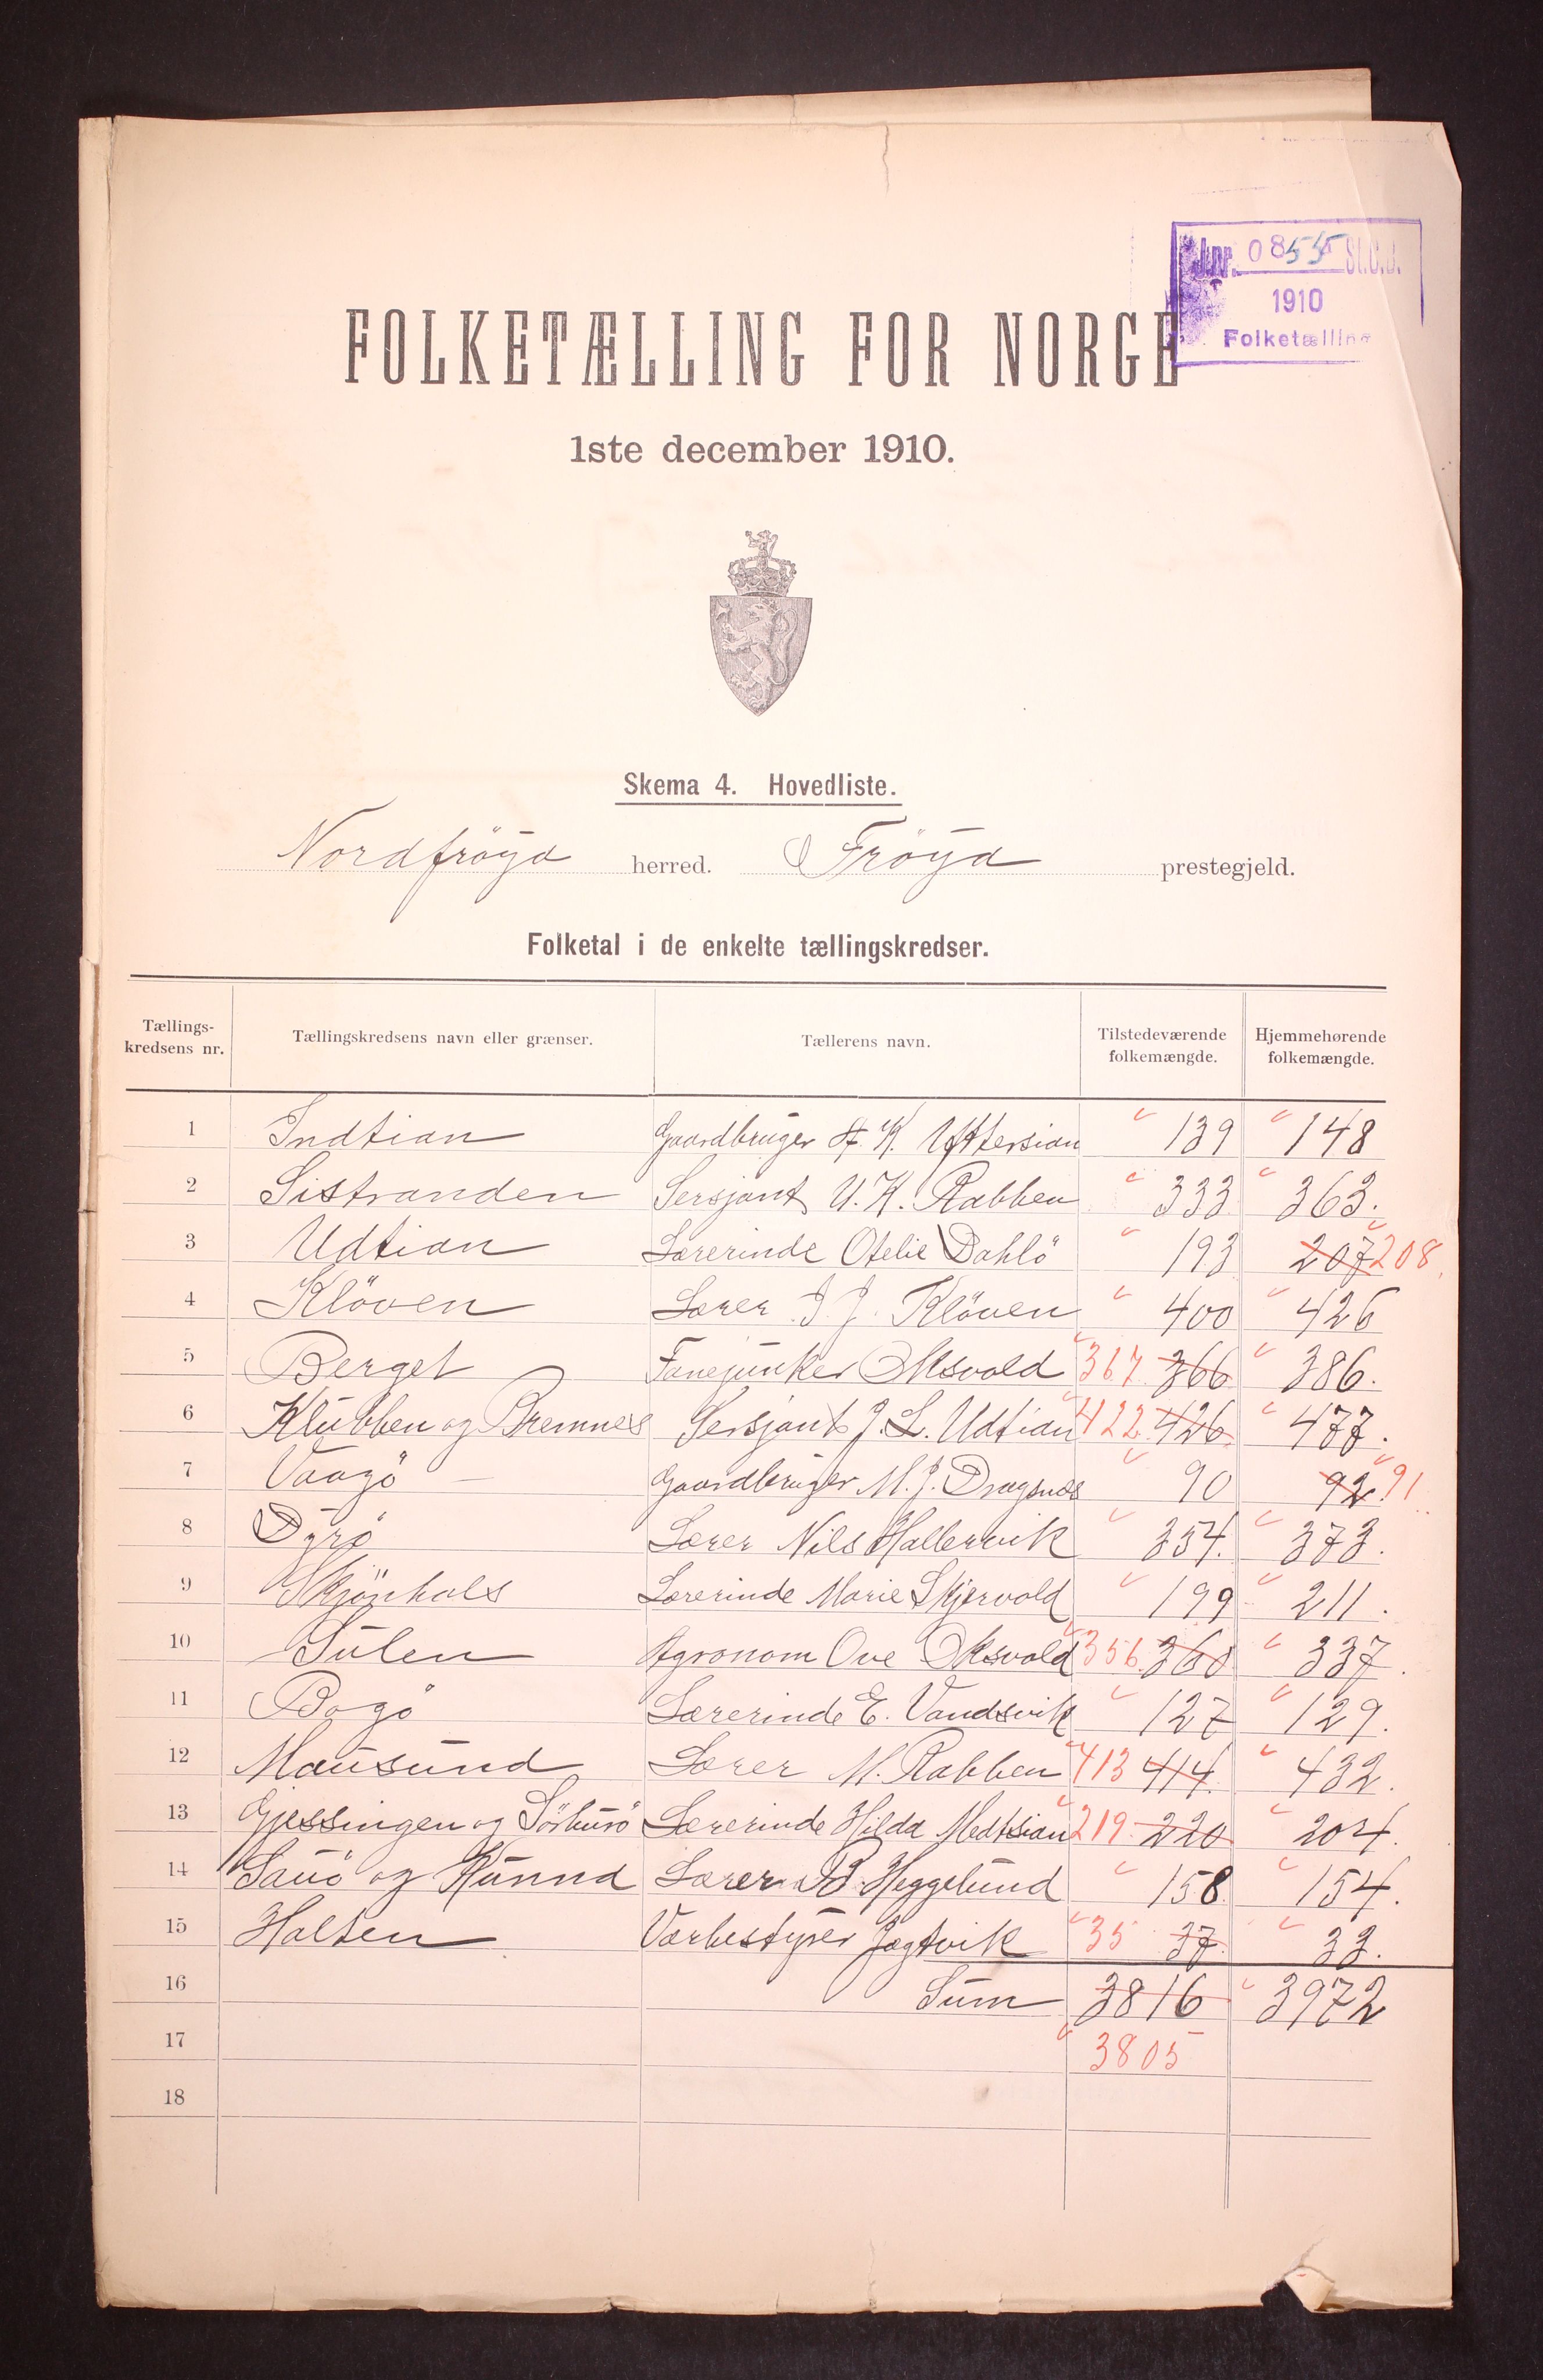 J.nr. 0855 St.C.B.
1910
Folketælling
FOLKETÆLLING FOR NORGE
1ste december 1910.
Skema 4. Hovedliste.
Nordfröya herred. Fröya prestegjeld.
Folketal i de enkelte tællingskredser.
Tællings-kredsens nr. Tællingskredsens navn eller grænser. Tællerens navn. Tilstedeværende folkemængde. Hjemmehørende folkemængde.
1 Indtian Gaardbruger H. K. Yttersian 139 148
2 Sistranden Sersjant U. K. Rabben 333 363.
3 Udtian Lærerinde Otelie Dahlö 193 207 208.
4 Klöven Lærer J. J. Klöven 400 426
5 Berget Fanejunker Oksvold 367 366 386.
6 Klubben og Bremnes Sersjant J. L. Udtian 422 426 477.
7 Vaagö — Gaardbruger M. J. Dragsnes 90 92. 91
8 Dyrö Lærer Nils Hallervik 354. 373.
9 Skjönhals Lærerinde Marie Skjervold 199 211.
10 Sulen Agronom Ove Oksvold 356 360 337.
11 Bogö Lærerinde E. Vandsvik 127 129.
12 Mausund Lærer M. Rabben 413 414. 432.
13 Gjessingen og Sörburö Lærerinde Hilda Medtsian 219 220 204.
14 Sauö og Hunnd Lærer B. Heggelund 158. 154.
15 Halten Værbestyrer Jægtvik 35 37. 33.
16 Sum 3816 3972
17 3805
18